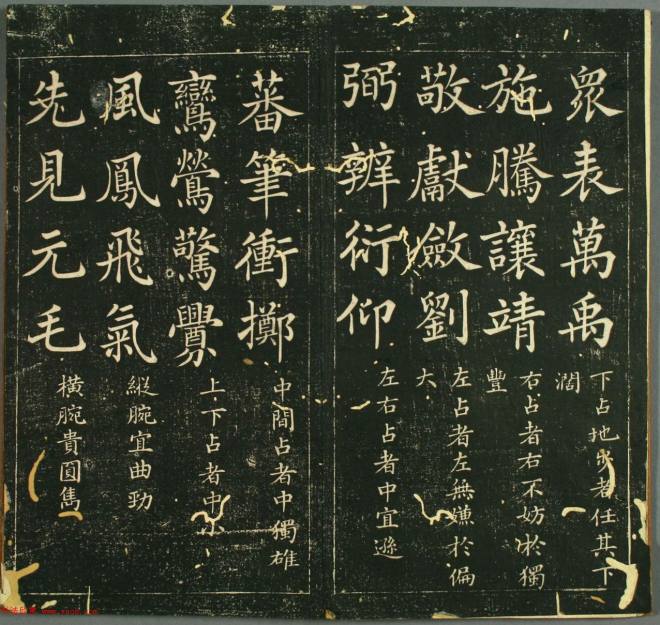 眾表萬禹
下占地步者任其下
闊
施騰讓靖
右占者右不妨於獨
豐
敬獻斂劉
左占者左無嫌於偏
大
弼辨衍仰
左右占者中宜遜
蕃筆衝擲
中間占者中獨雄
鸞鶯驚釁
上下占者中小
風鳳飛氣
縱腕宜曲勁
先見元毛
橫腕貴圓雋